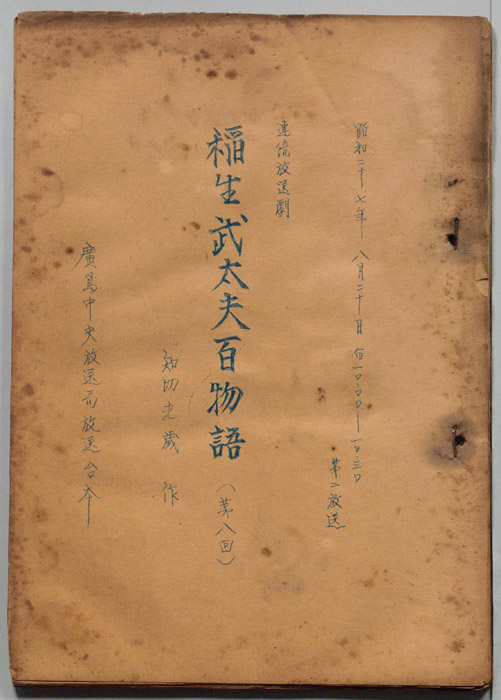 昭和二十七年 八月二十日 自一〇.〇〇—一〇.三〇
第二放送
連続放送劇
稲生武太夫百物語（第八回）
知切光歳 作
廣島中央放送局放送台本